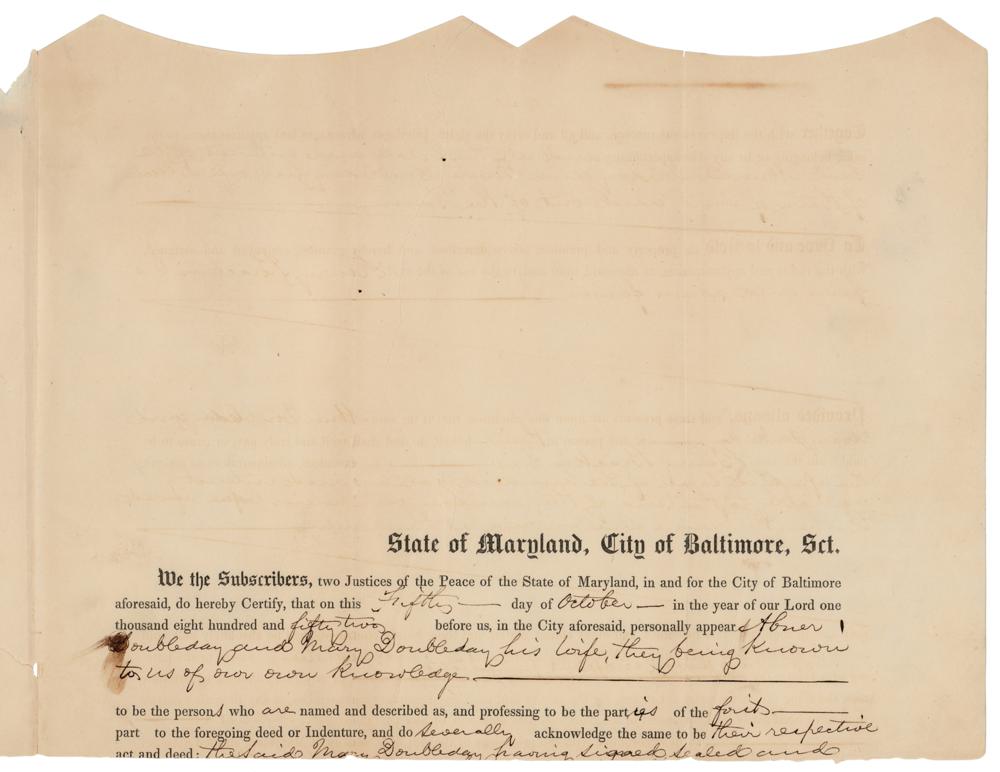 State of Maryland, City of Baltimore, Sct.
We the Subscribers, two Justices of the Peace of the State of Maryland, in and for the City of Baltimore
aforesaid, do hereby Certify, that on this Fifth day of October in the year of our Lord one
thousand eight hundred and fifty two before us, in the City aforesaid, personally appears Abner
Doubleday and Mary Doubleday his wife, they being known
to us of our own knowledge
to be the persons who are named and described as, and professing to be the parties of the first
part to the foregoing deed or Indenture, and do severally acknowledge the same to be their respective
act and deed; the said Mary Doubleday having signed sealed and